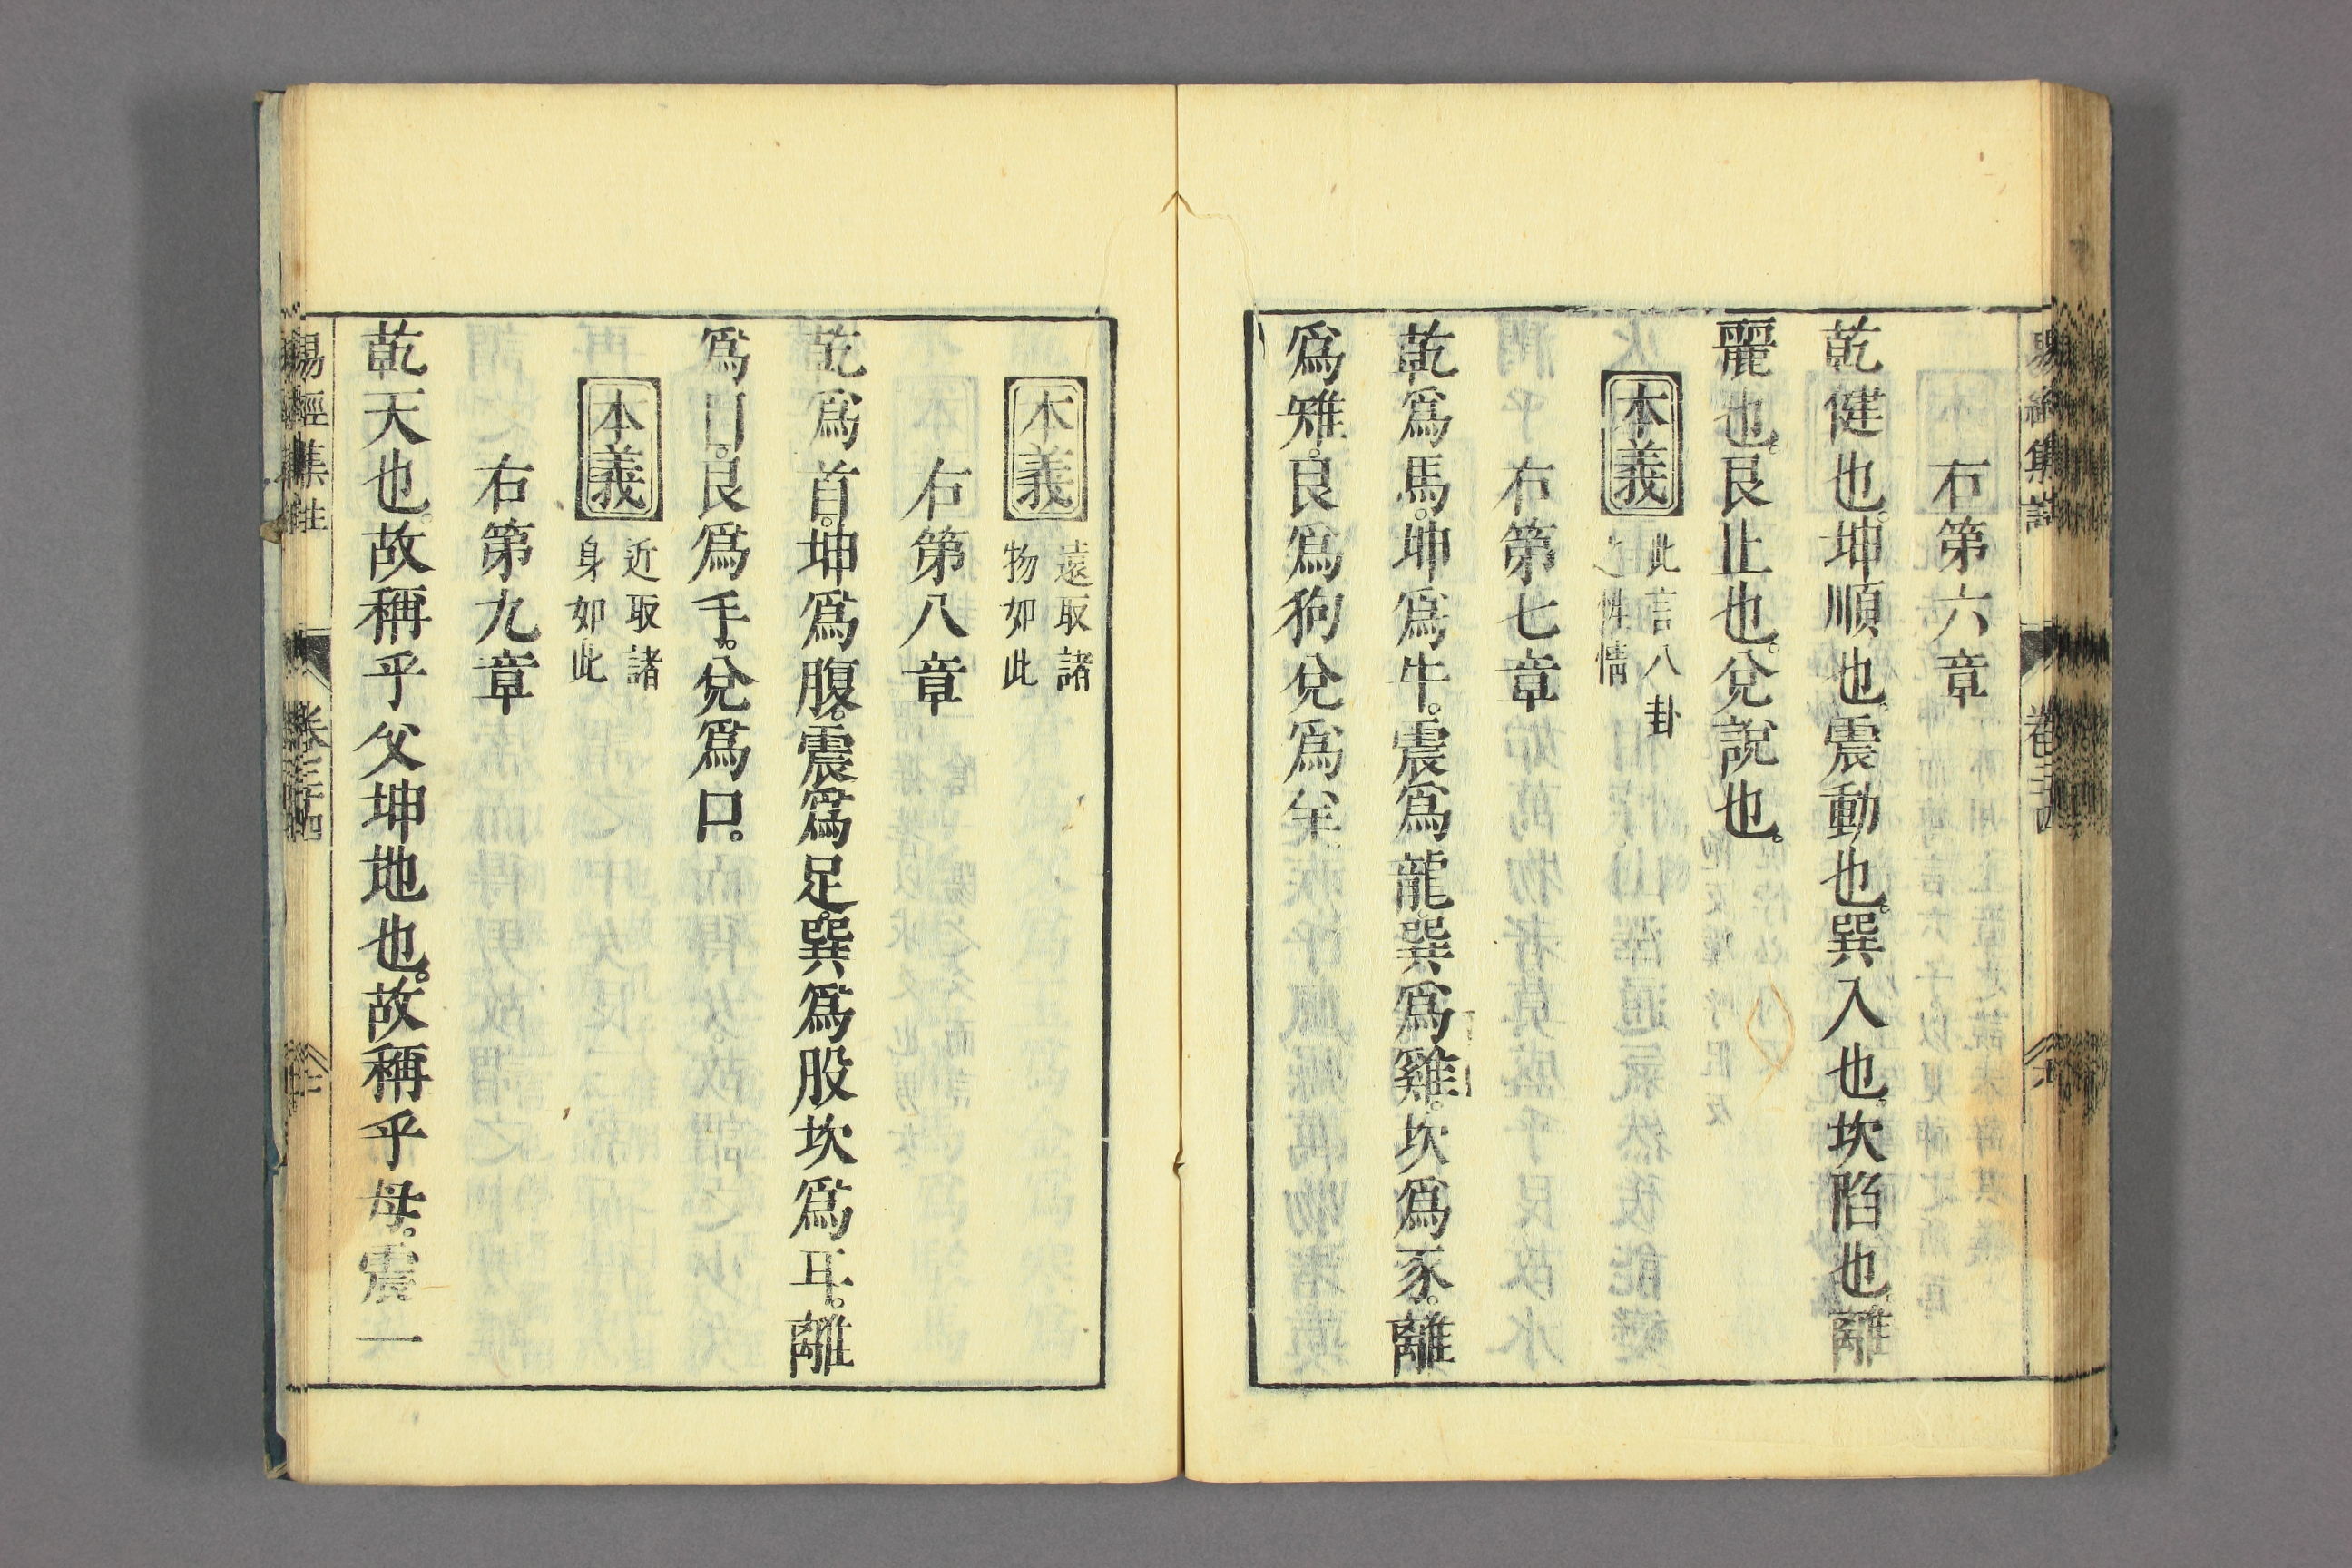 右第六章
乾健也。坤順也。震動也。巽入也。坎陷也。離
麗也。艮止也。兌說也。
本義 此言八卦
之性情
右第七章
乾爲馬。坤爲牛。震爲龍。巽爲雞。坎爲豕。離
爲雉。艮爲狗兌爲羊。
本義 遠取諸
物如此
右第八章
乾爲首。坤爲腹。震爲足。巽爲股坎爲耳。離
爲目。艮爲手。兌爲口。
本義 近取諸
身如此
右第九章
乾天也。故稱乎父坤地也。故稱乎母。震一
易經集註
卷二十四